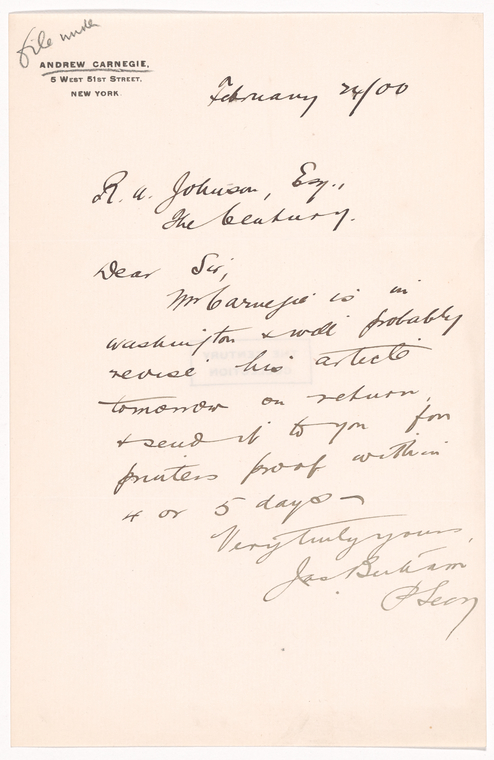 File under
ANDREW CARNEGIE,
5 WEST 51ST STREET.
NEW YORK.
February 24/00
R. U. Johnson, Esq.,
The Century.
Dear Sir,
Mr Carnegie is in
Washington & will probably
revise his article
tomorrow on return,
& send it to you for
printers proof within
4 or 5 days —
Very truly yours,
Jas Bertram
P Secy